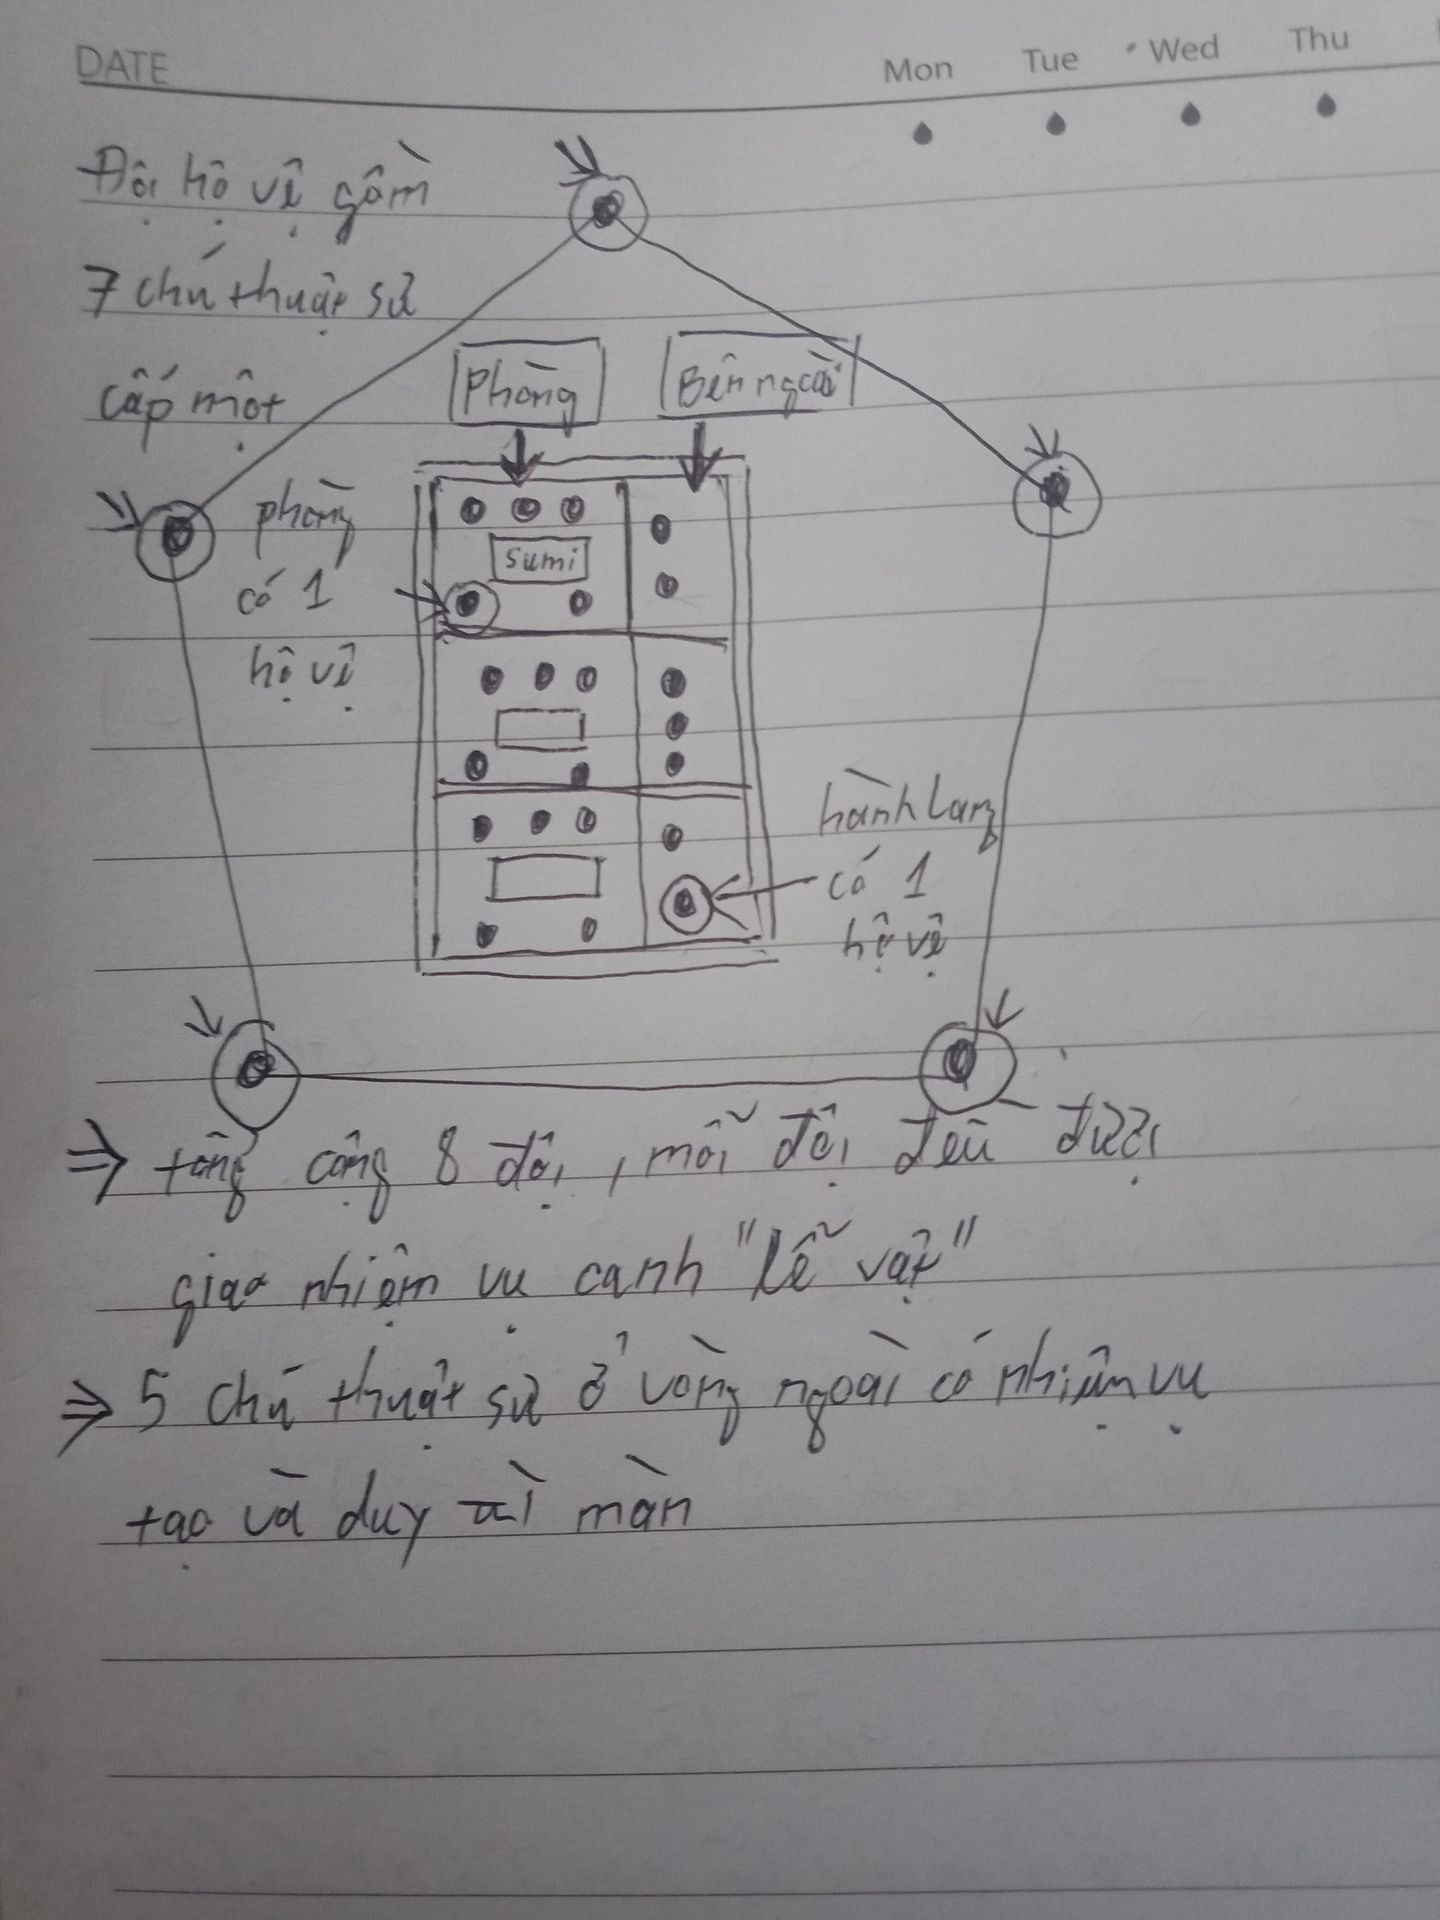 DATE
Mon Tue Wed Thu
Đội hộ vệ gồm
7 chú thuật sư
cấp một
Phòng
Bên ngoài
phòng
có 1
hộ vệ
sumi
hành lang
có 1
hộ vệ
⇒ tổng cộng 8 đội, mỗi đội đều được
giao nhiệm vụ canh "lễ vật"
⇒ 5 chú thuật sư ở vòng ngoài có nhiệm vụ
tạo và duy trì màn